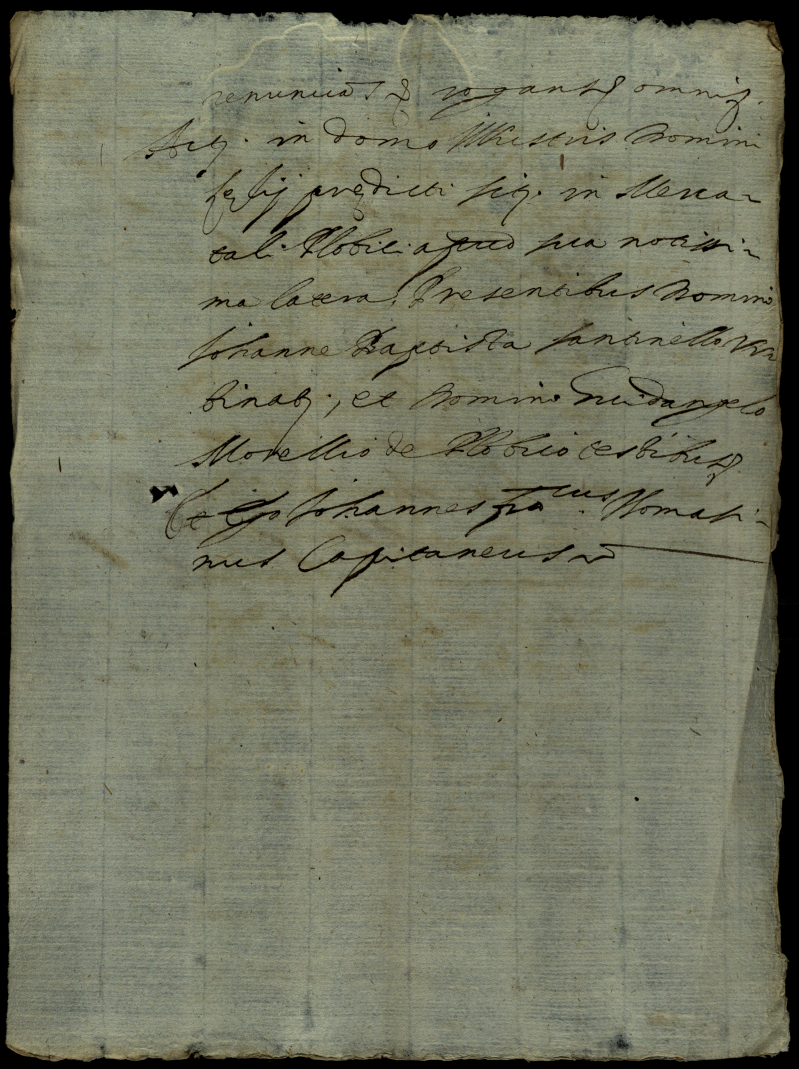 renuncians & rogans omni.
Act. in domo Illustris Domini
felij predicti sit. in Merca-
tali Plobici apud sua notissi-
ma latera. Presentibus Domino
Johanne Baptista Santinello Ur-
binat., et Domino Guidangelo
Morellio de Plobico testibus
Et Ego Johannes Fra.cus Thomasi-
nus Capitaneus